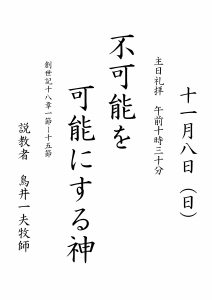 十一月八日（日）
主日礼拝　午前十時三十分
不可能を
可能にする神
創世記十八章一節－十五節
説教者　鳥井一夫牧師